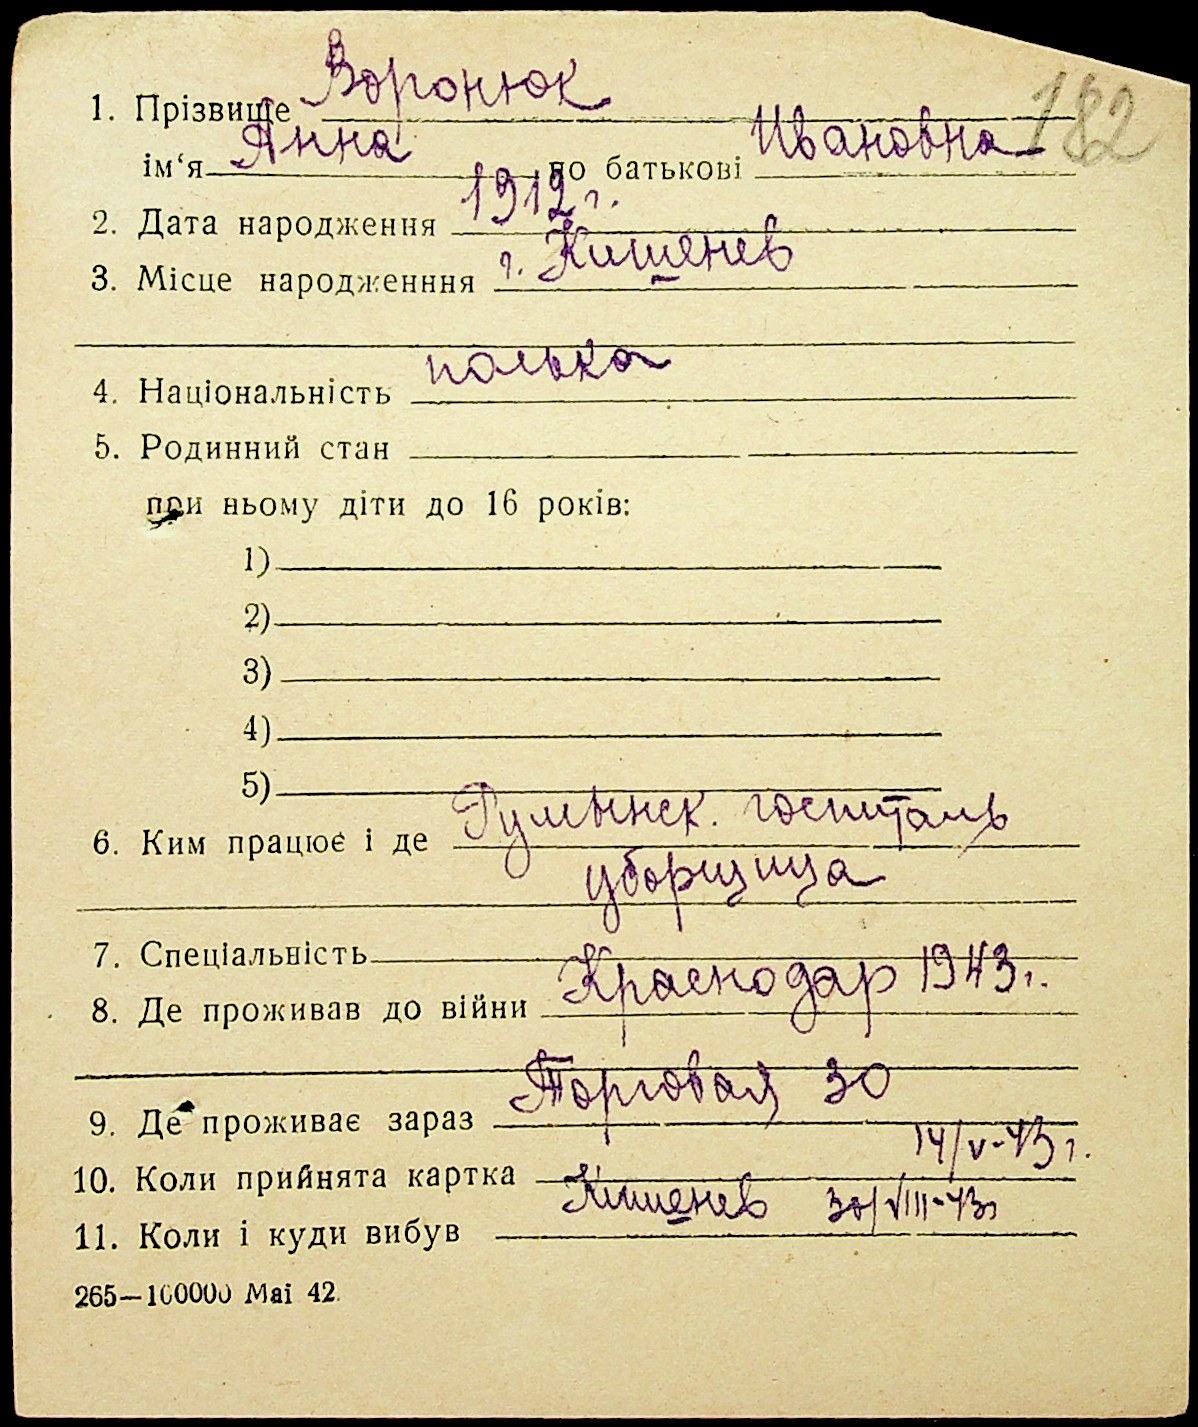 182
1. Прізвище Воронюк
ім‘я Анна по батькові Ивановна
2. Дата народження 1912 г.
3. Місце народженння г. Кишенев
4. Національність полька
5. Родинний стан
при ньому діти до 16 років:
1)
2)
3)
4)
5)
6. Ким працює і де Румынск. госпиталь
уборщица
7. Спеціальність
8. Де проживав до війни Краснодар 1943 г.
9. Де проживає зараз Торговая 30
10. Коли прийнята картка 14/V-43 г.
11. Коли і куди вибув Кишенев 30/VIII-43г
265—100000 Mai 42.